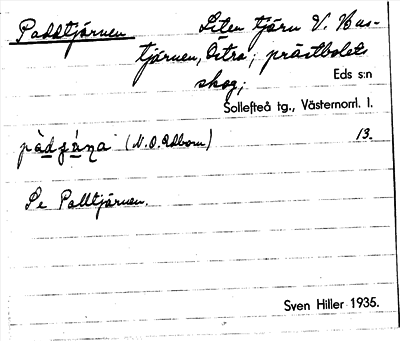 Paddtjärnen Liten tjärn V. Hus-
tjärnen, Östra; prästbolets
skog;
Eds s:n
Sollefteå tg., Västernorrl. l.
(N.O. Edbom) 13.
Se Palltjärnen.
Sven Hiller 1935.